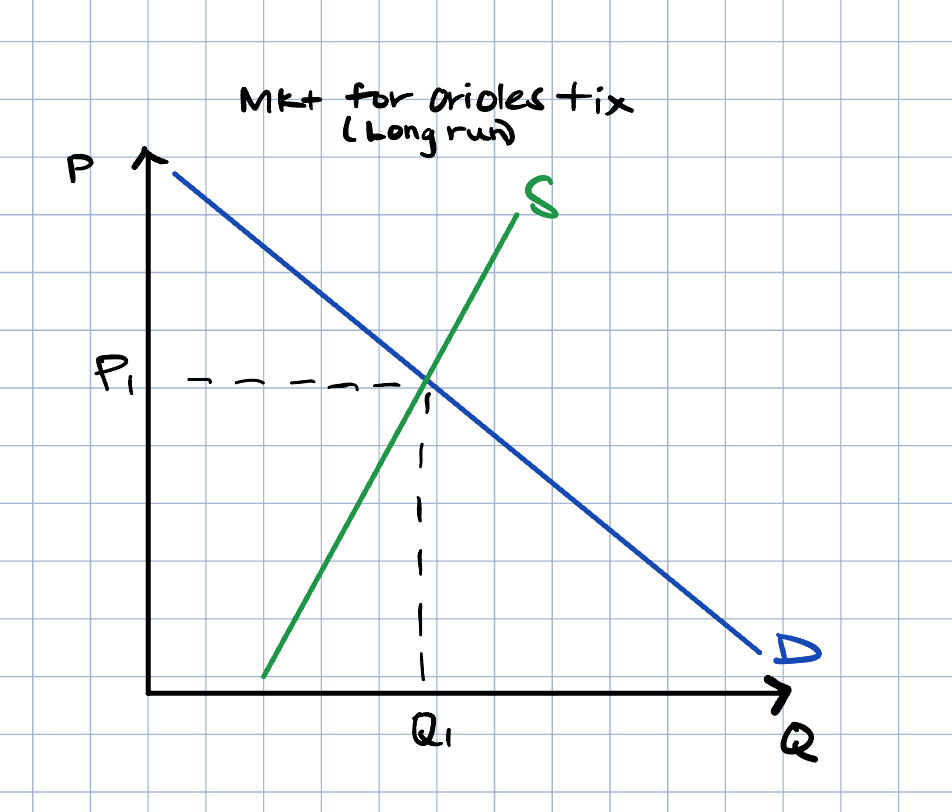 Mkt for orioles tix
(Long run)
P
S
P1
D
Q1
Q